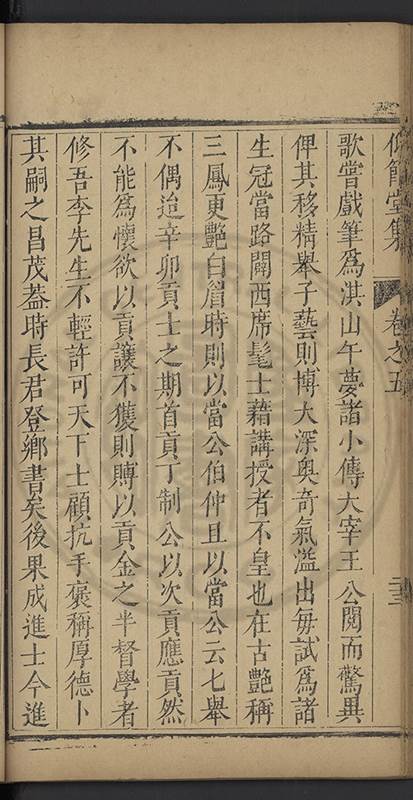 脩䬸堂集 卷之五 二三
歌嘗戲筆爲淇山午夢諸小傳大宰王 公閱而驚異
俾其移精舉子藝則博大深奧奇氣溢出每試爲諸
生冠當路闢西席髦士藉講授者不皇也在古艷稱
三鳳更艷白眉時則以當公伯仲且以當公云七舉
不偶迨辛卯貢士之期首貢丁制公以次貢應貢然
不能爲懷欲以貢讓不獲則賻以貢金之半督學者
修吾李先生不輕許可天下士顧抗手褒稱厚德卜
其嗣之昌茂葢時長君登鄉書矣後果成進士今進